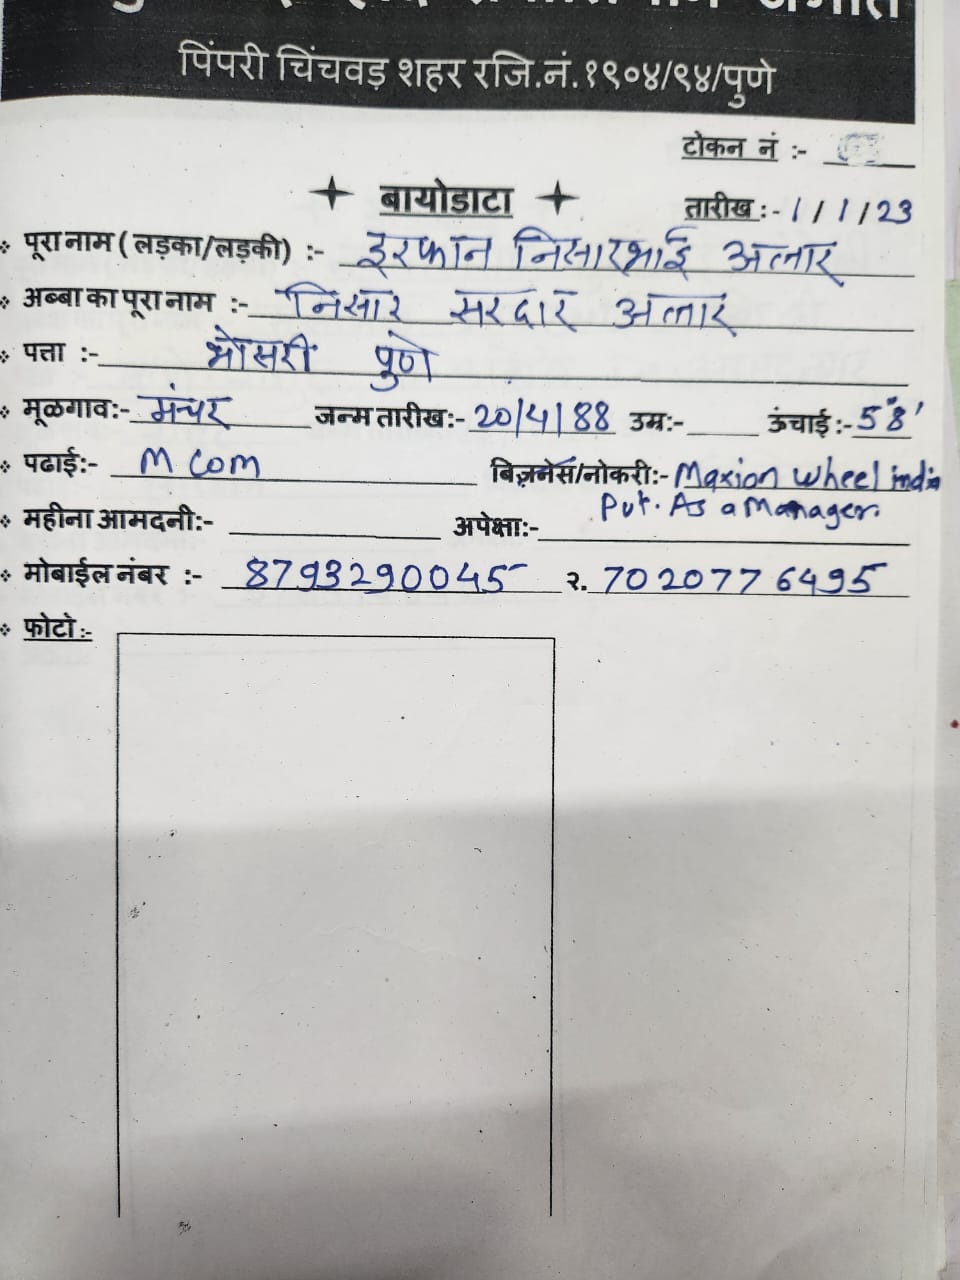 पिंपरी चिंचवड शहर रजि.नं.१९०४/९४/पुणे
टोकन नं :-
बायोडाटा
तारीख :- 1/1/23
पूरा नाम ( लड़का/लड़की) :- इरफान निसारभाई अत्तार
अब्बा का पूरा नाम :- निसार सरदार अत्तार
पत्ता :- भोसरी पुणे
मूळगाव:- मंचर जन्म तारीख:- 20/4/88 उम्र:- ऊंचाई :- 5"8'
पढाई:- M COM बिज़नेस/नोकरी:- Maxion Wheel india
Pvt. As a Manager.
महीना आमदनी:- अपेक्षा:-
मोबाईल नंबर :- 8793290045 २. 7020776495
फोटो:-